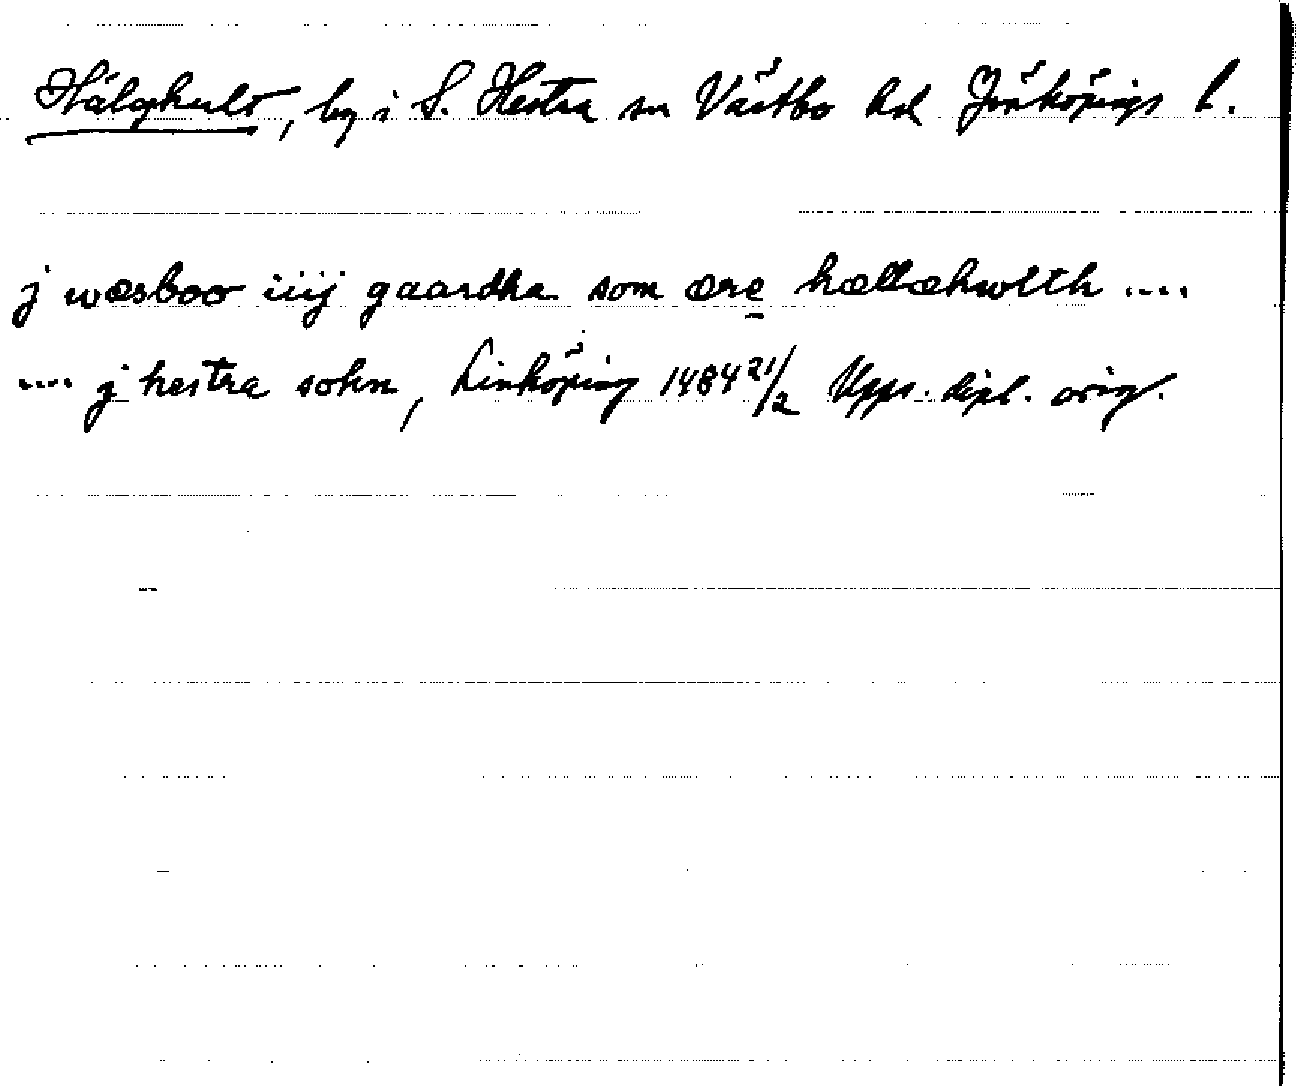 Hälghult, by i S. Hestra sn Västbo hd Jönköpings l.
j wæsboo iiij gaardha som ære hællæhwlth ....
.... j hestra sokn, Linköping 1484 21/2 Upps. dipl. orig.